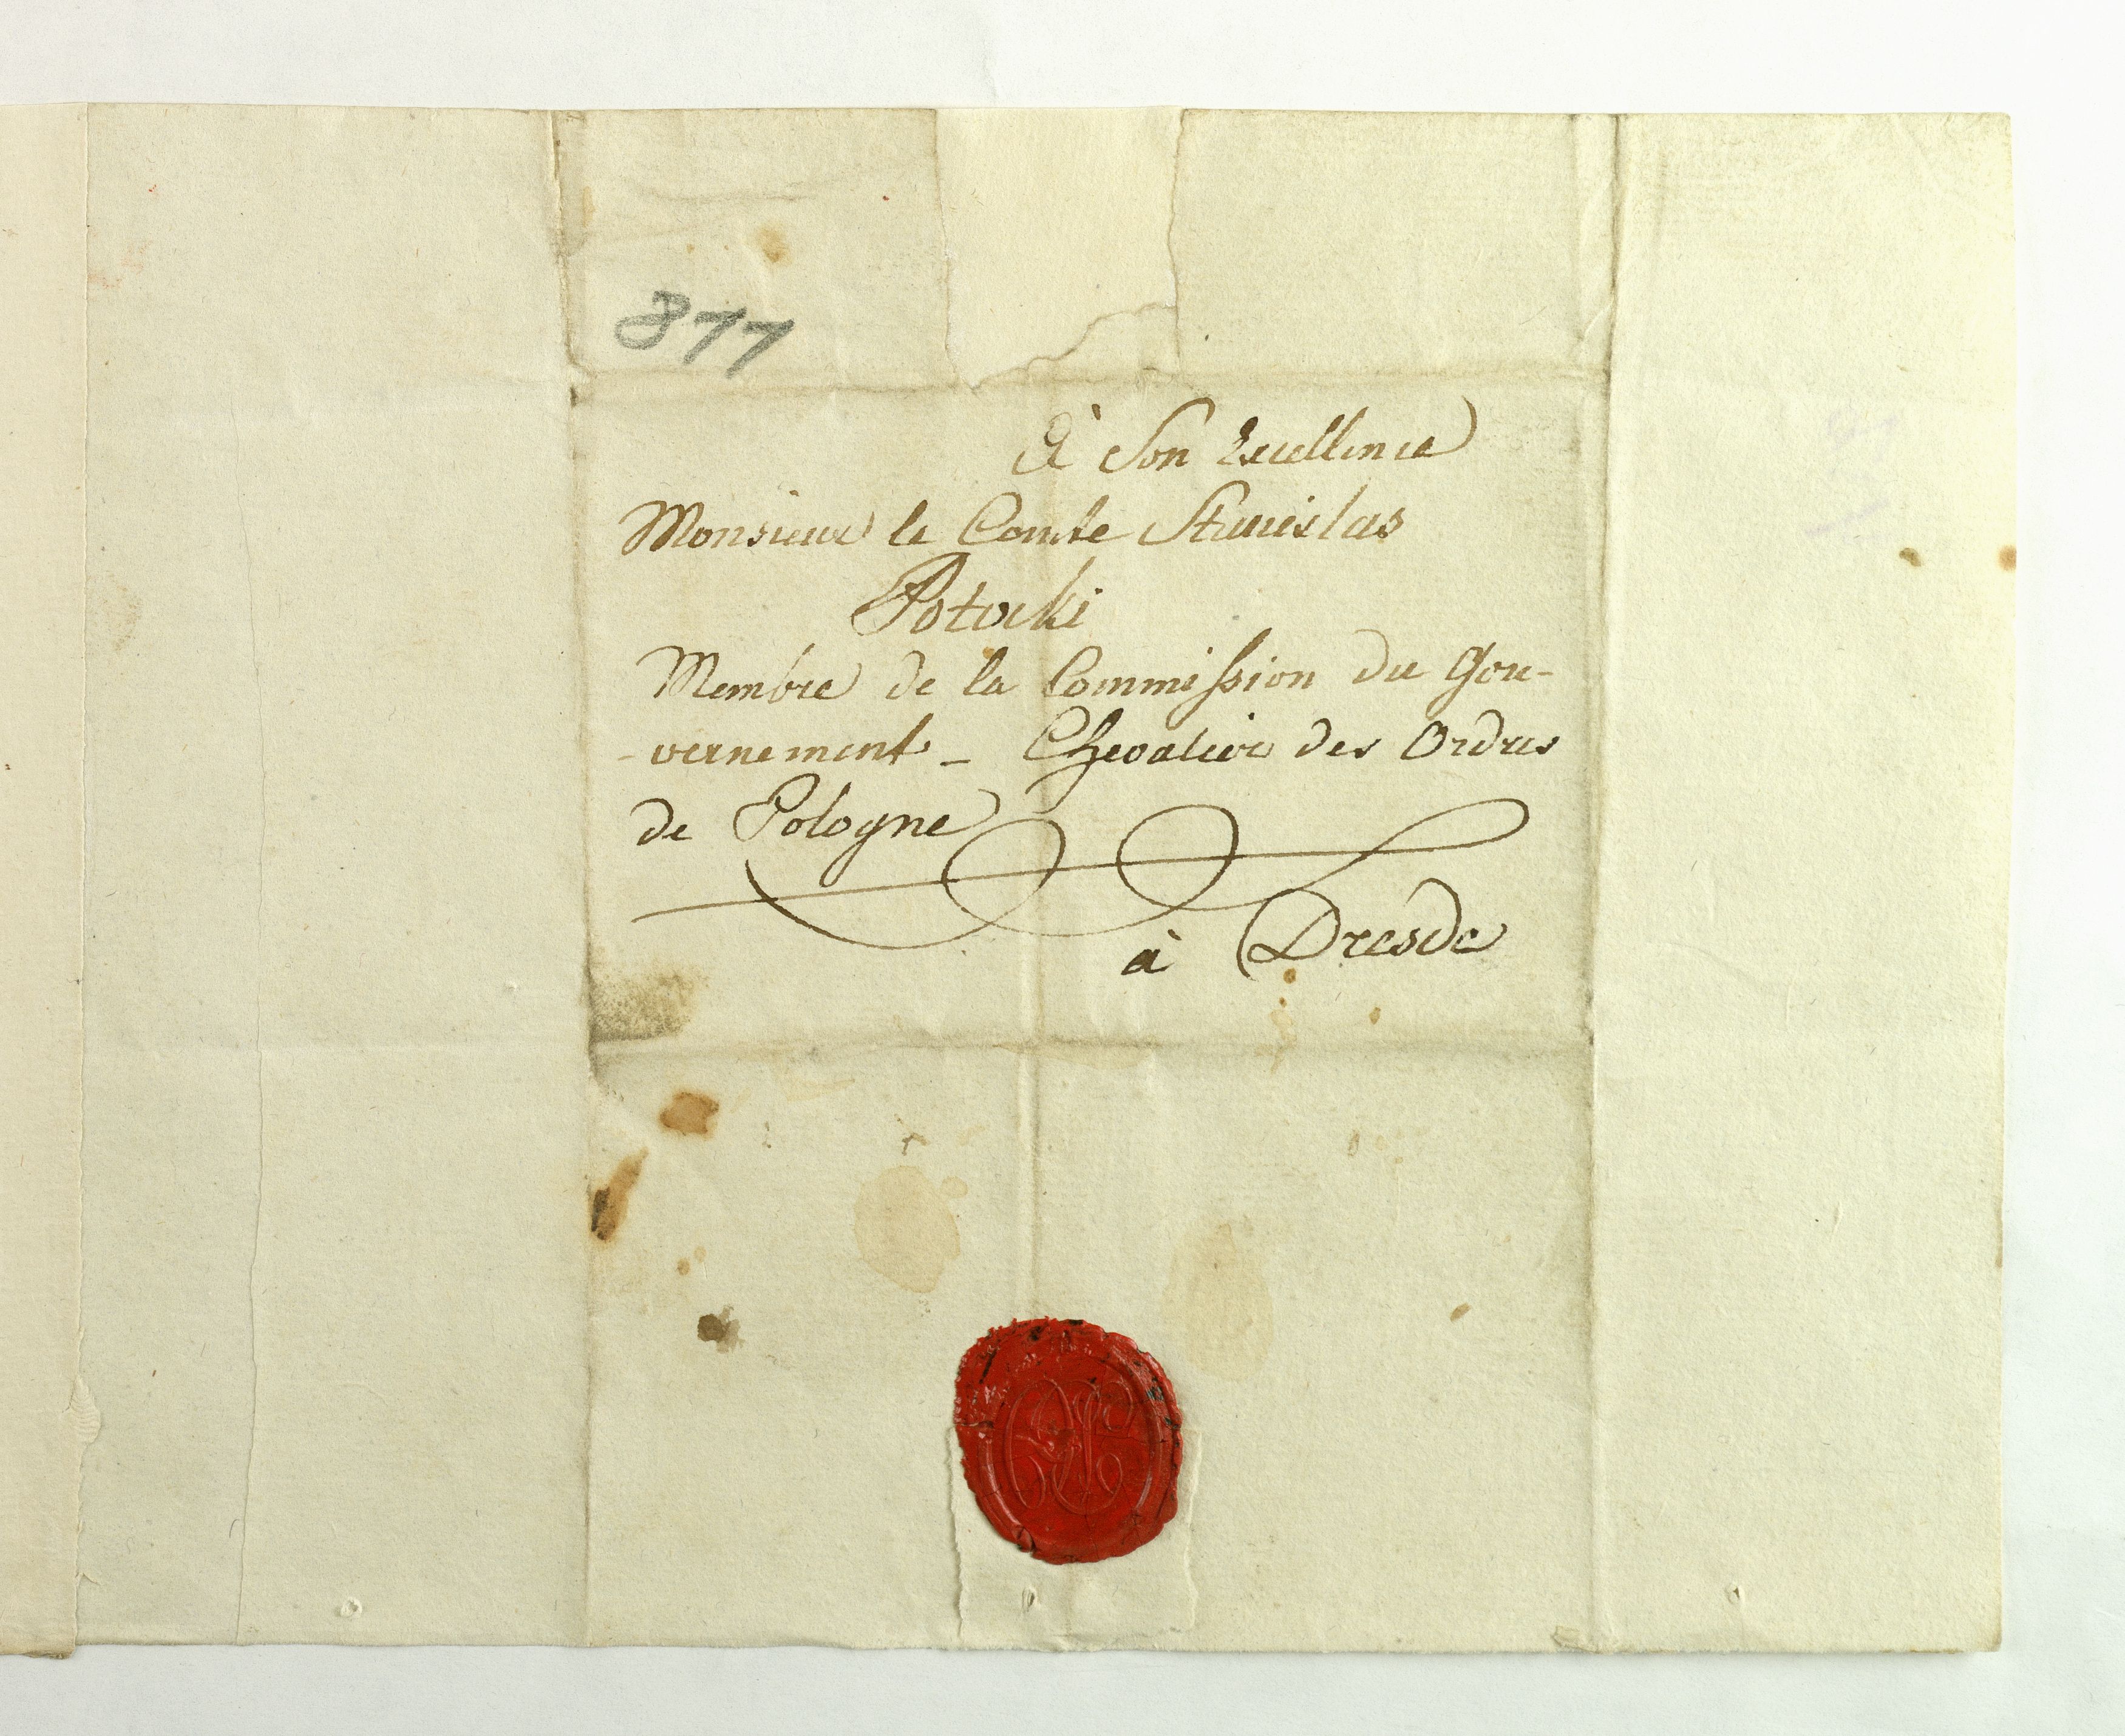 377
à Son Excellence
Monsieur le Comte Stanislas
Potocki
Membre de la Commission du Gou-
-vernement - Chevalier des Ordres
de Pologne
à Dresde